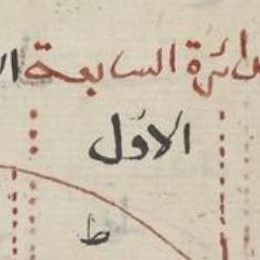 دائرة السابعة
الاول
ط